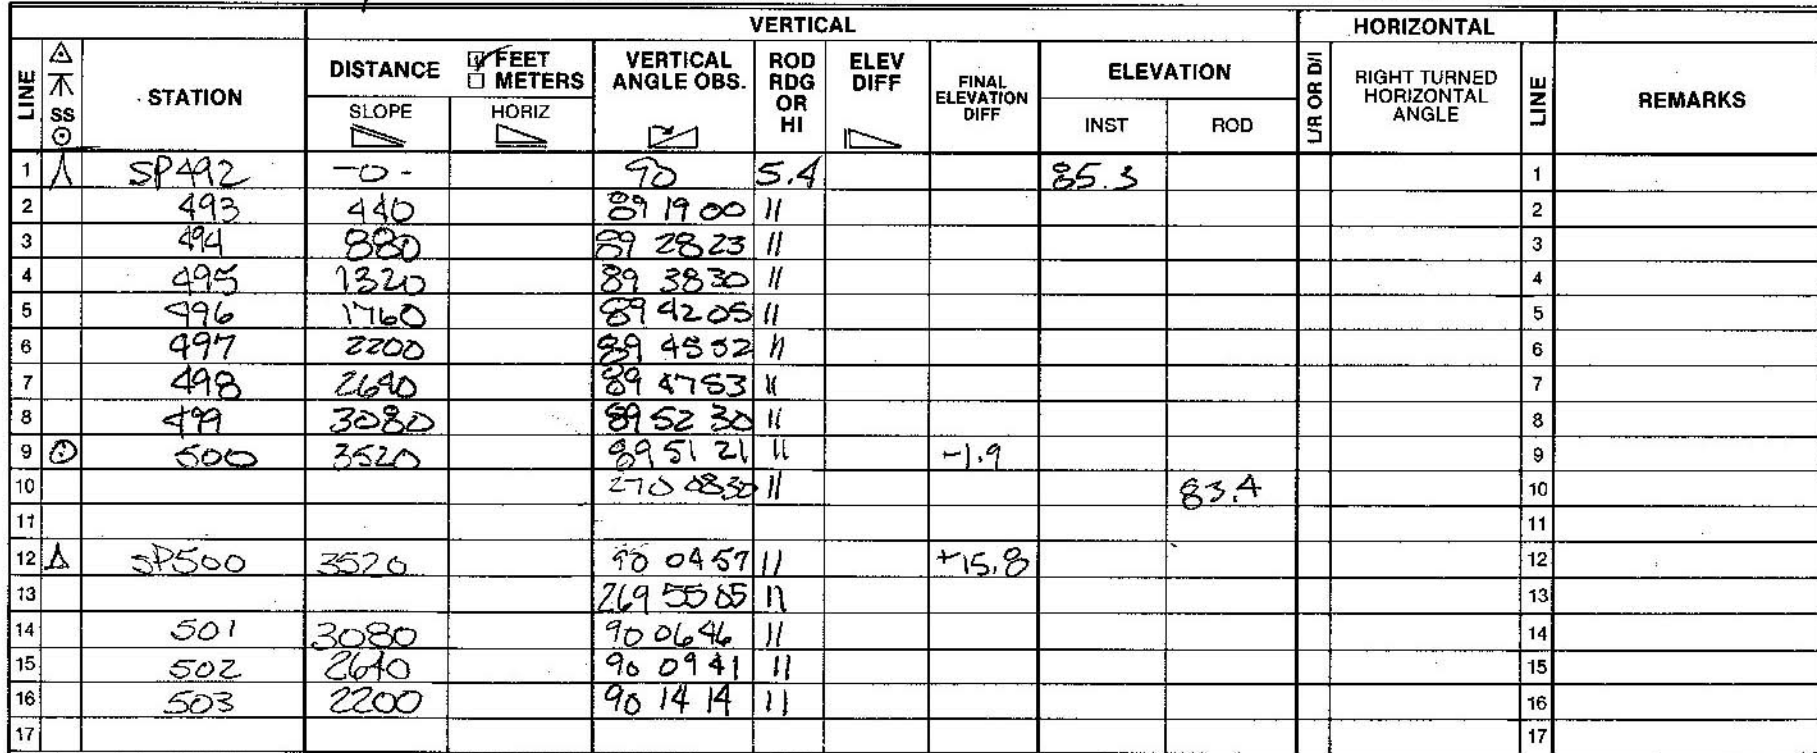 VERTICAL HORIZONTAL
LINE SS STATION DISTANCE FEET METERS SLOPE HORIZ VERTICAL ANGLE OBS. ROD RDG OR HI ELEV DIFF FINAL ELEVATION DIFF ELEVATION INST ROD L/R OR D/I RIGHT TURNED HORIZONTAL ANGLE LINE REMARKS
1 SP492 -0- 90 5.4 85.3 1
2 493 440 89 19 00 11 2
3 494 880 89 28 23 11 3
4 495 1320 89 38 30 11 4
5 496 1760 89 42 05 11 5
6 497 2200 89 45 52 11 6
7 498 2640 89 47 53 11 7
8 499 3080 89 52 30 11 8
9 500 3520 89 51 21 11 -1.9 9
10 270 08 30 11 83.4 10
11 11
12 SP500 3520 90 04 57 11 +15.8 12
13 269 55 05 11 13
14 501 3080 90 06 46 11 14
15 502 2640 90 09 41 11 15
16 503 2200 90 14 14 11 16
17 17